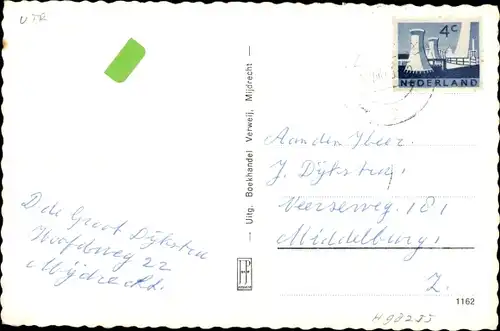 UTR
4c
NEDERLAND
D de Groot Dijkstra
Hoofdweg 22
Mijdrecht.
— Uitg. Boekhandel Verweij, Mijdrecht —
Aan den Heer.
J. Dijkstra,
Veerseweg. 181
Middelburg,
Z.
1162
H98255